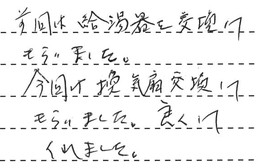 前回は給湯器を交換して
もらいました。
今回は換気扇交換して
もらいました。良くして
くれました。